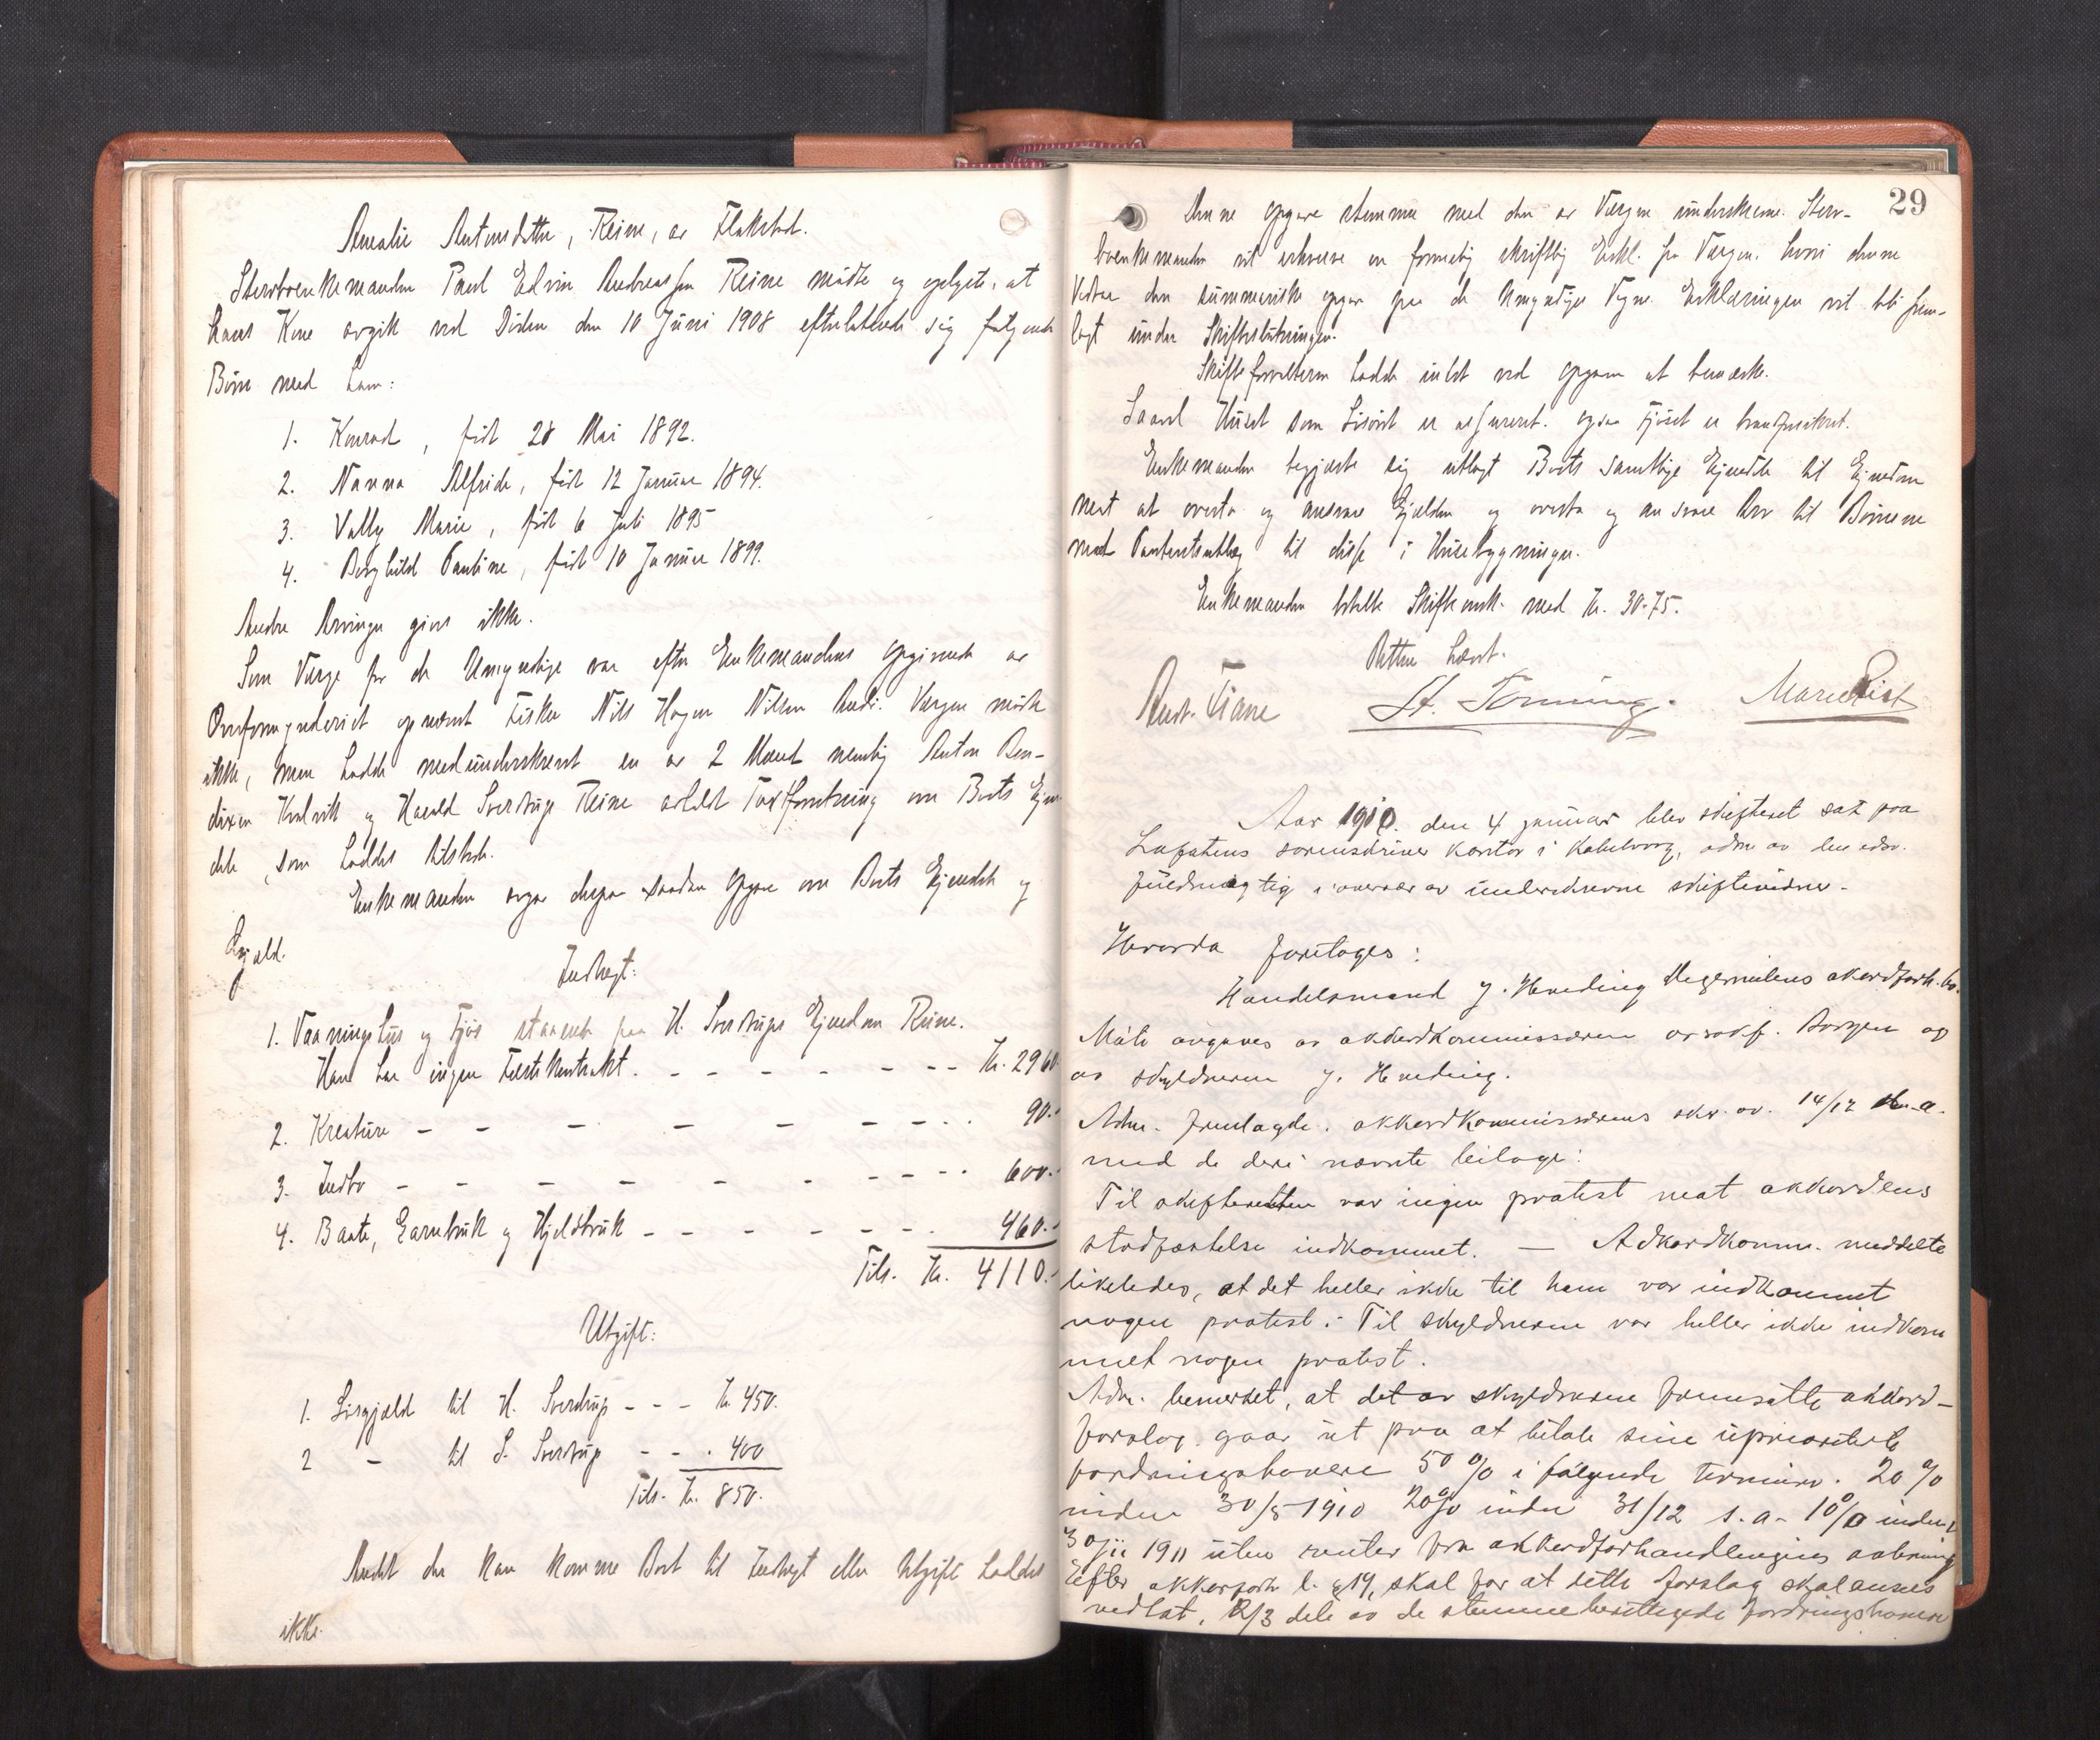 Amalie Antonsdatter, Reine, av Flakstad.
Stervboenkemanden Paul Edvin Andreassen Reine mødte og opgav, at
hans Kone avgik ved Døden den 10 Juni 1908 efterlatende sig følgende
Børn med ham:
1. Konrad, født 28 Mai 1892.
2. Nanna Alfride, født 12 Januar 1894.
3. Vally Marie, født 6 Juli 1895
4. Borghild Pauline, født 10 Januar 1899.
Andre Arvinger gives ikke.
Som Værge for de Umyndige var efter Enkemandens Opgivende av
Overformynderiet opnævnt Fisker Nils Hagen Nilsen Værgen mødte
ikke, men hadde medunderskrevet en av 2 Mænd nemlig Anton Ben-
dixen og Harald Sverdrup Reine avholdt Taxtforretning over Boets Eien-
dele, som hadde tilstede.
Enkemanden avgav derpaa saadan Opgave over Boets Eiendele og
Gjæld.
Indtægt:
1. Vaaningshus og Fjøs staaende paa H. Sverdrups Eiendom Reine.
Han har ingen Festekontrakt. - - - - - - - Kr. 2960
2. Kreature - - - - - - - - . 90.-
3. Indbo - - - - - - - - - . 600.-
4. Baate, Garnbruk og Hjeldbruk - - - - - - . 460.-
Tils. Kr. 4110.-
Utgift:
1. Liggjæld til H. Sverdrup - - - Kr. 450.
2 - til S. Sverdrup - - . 400
Tils. Kr. 850.
Andet der kan komme Boet til Indtægt eller Utgift haddes
ikke.
29
Denne Opgave stemmer med den av Værgen underskrevne. Sterv-
boenkemanden vil erhverve en formelig skriftlig Erkl. fra Værgen, hvori denne
vedtar den summariske opgjør paa de Umyndiges Vegne. Erklæringen vil bli frem-
lagt under Skifteslutningen.
Skifteforvalteren hadde intet ved Opgaven at bemærke.
Saavel Huset som Løsøret er assureret. ogsaa Fjøset er brandforsikret.
Enkemanden begjærte sig utlagt Boets samtlige Eiendele til Eiendom
mot at overta og ansvare Gjælden og overta og ansvare Arv til Børnene
mot Panteutlæg til disse i Husebygningen.
Enkemanden betalte Skifteomk. med Kr. 30.75.
Retten hævet.
St. Tønning. Marie Rist
Aar 1910. den 4 januar blev skifteret sat paa
Lofotens sorenskriver kontor i Kabelvaag, adm av den edsv.
fuldmægtig i overvær av underskrevne skiftevidner.
Hvorda foretoges:
Handelsmand J. Hveding akordforh. bo.
Møte avgaves av akkordkommissæren og
av skyldneren J. Hveding.
Adm. fremlagde akkordkommissærens skr. av 14/12
med de deri nævnte bilage:
Til skifteretten var ingen protest mot akkordens
stadfæstelse indkommet. — Akkordkomm. meddelte
likeledes, at det heller ikke til ham var indkommet
nogen protest. Til skyldneren var heller ikke indkom
met nogen protest.
Adm. bemerket, at det av skyldneren fremsatte akkord-
forslag gaar ut paa at betale sine uprioriterte
fordringshavere 50 % i følgende terminer. 20 %
inden 30/5 1910 20 % inden 31/12 s.a. 10 % inden
1911 uten renter fra akkordforhandlingens aapning
Efter akkordforh l. § 19, skal for at dette forslag skal ansees
vedtat, 2/3 dele av de stemmeberettigede fordringshavere